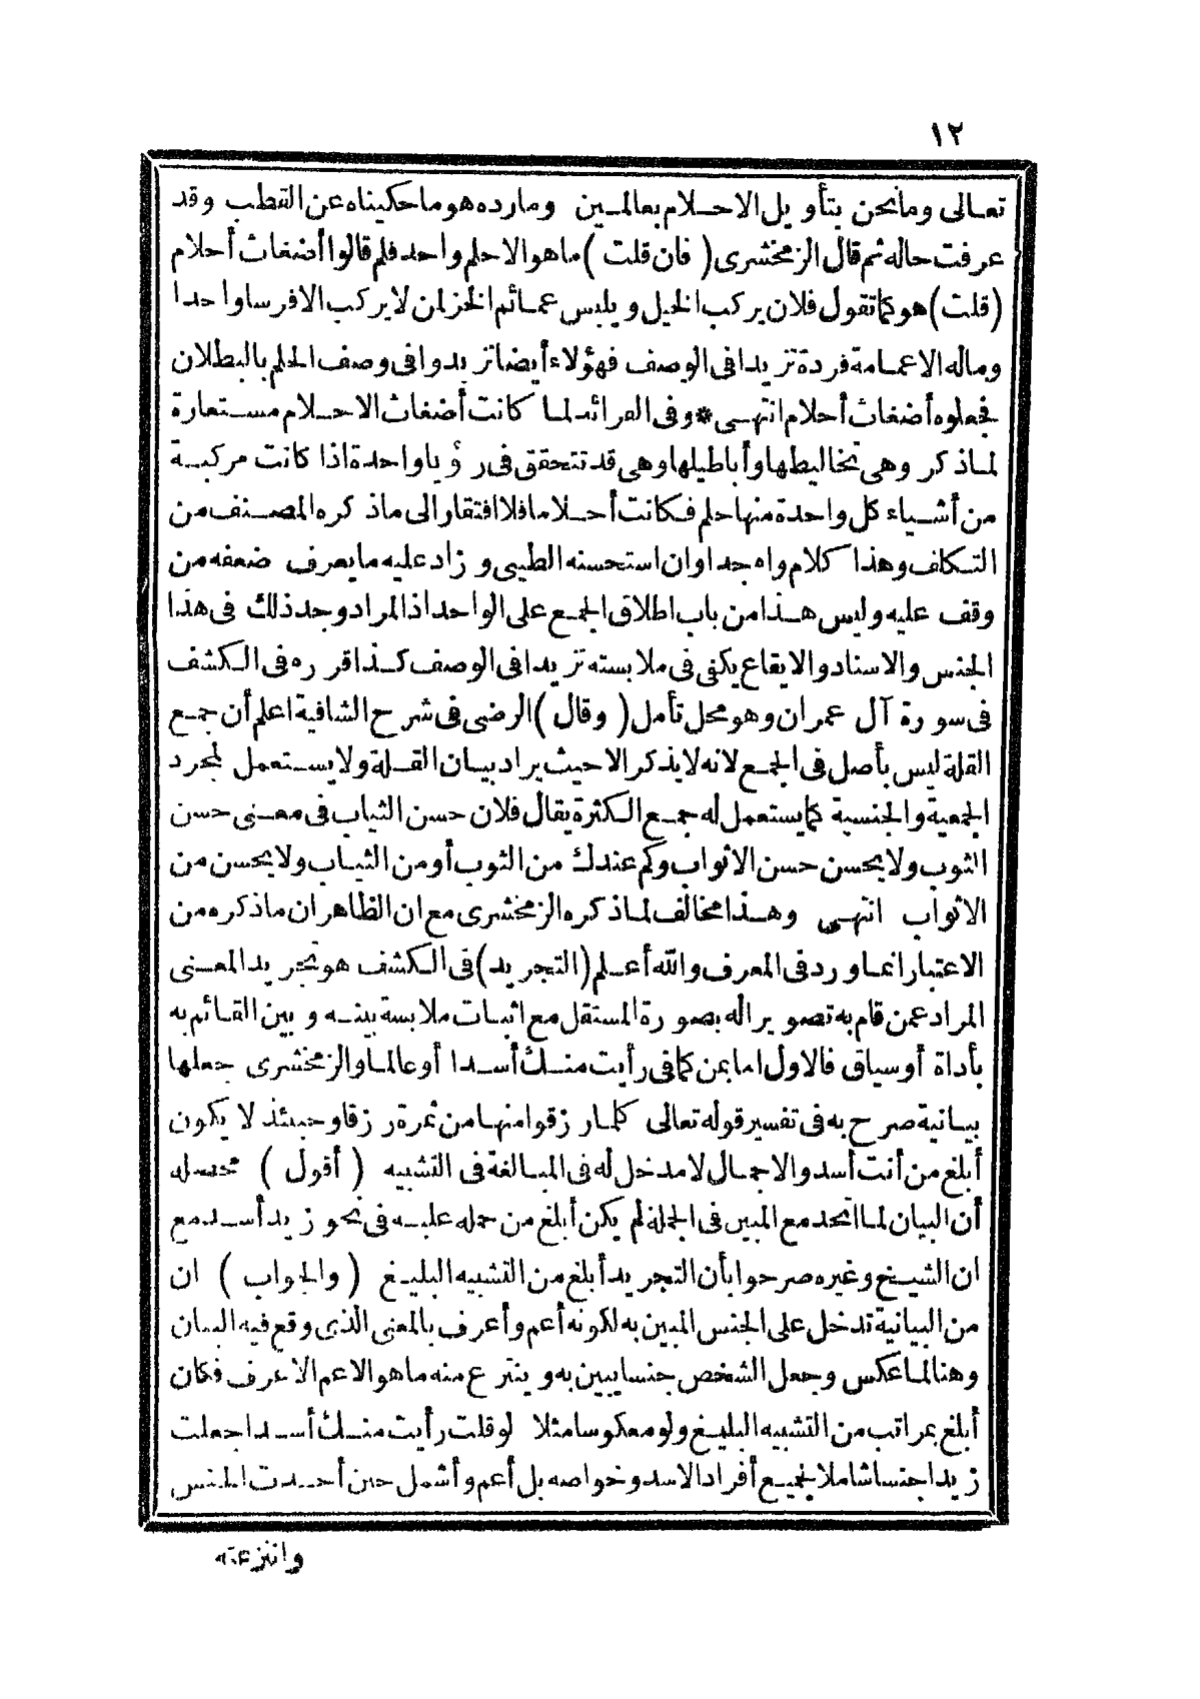 ١٢
تعالى وما نحن بتأويل الاحلام بعالمين وما رده هو ما حكيناه عن القطب وقد
عرفت حاله ثم قال الزمخشرى (فان قلت) ما هو الا حلم واحد فلم قالوا أضغاث أحلام
(قلت) هو كما تقول فلان يركب الخيل ويلبس عمائم الخز لمن لا يركب الا فرسا واحدا
وماله الا عمامة فردة تزيدا فى الوصف فهؤلاء أيضا تزيدوا فى وصف الحلم بالبطلان
فجعلوه أضغاث أحلام انتهى * وفى الفرائد لما كانت أضغاث الاحلام مستعارة
لما ذكر وهى تخاليطها وأباطيلها وهى قد تتحقق فى رؤيا واحدة اذا كانت مركبة
من أشياء كل واحدة منها حلم فكانت أحلاما فلا افتقار الى ما ذكره المصنف من
التكلف وهذا كلام واه جدا وان استحسنه الطيبى وزاد عليه ما يعرف ضعفه من
وقف عليه وليس هذا من باب اطلاق الجمع على الواحد اذ المراد وجد ذلك فى هذا
الجنس والاسناد والايقاع يكفى فى ملابسته تزيدا فى الوصف كذا قرره فى الكشف
فى سورة آل عمران وهو محل تأمل (وقال) الرضى فى شرح الشافية اعلم أن جمع
القلة ليس بأصل فى الجمع لانه لا يذكر الا حيث يراد بيان القلة ولا يستعمل لمجرد
الجمعية والجنسية كما يستعمل له جمع الكثرة يقال فلان حسن الثياب فى معنى حسن
الثوب ولا يحسن حسن الاثواب وكم عندك من الثوب أو من الثياب ولا يحسن من
الاثواب انتهى وهذا مخالف لما ذكره الزمخشرى مع ان الظاهر ان ما ذكره من
الاعتبار انما ورد فى المعرف والله أعلم (التجريد) فى الكشف هو تجريد المعنى
المراد عمن قام به تصويرا له بصورة المستقل مع اثبات ملابسة بينه وبين القائم به
بأداة أو سياق فالاول اما بمن كما فى رأيت منك أسدا أو عالما والزمخشرى جعلها
بيانية صرح به فى تفسير قوله تعالى كلما رزقوا منها من ثمرة رزقا وحينئذ لا يكون
أبلغ من أنت أسد والاجمال لا مدخل له فى المبالغة فى التشبيه (أقول) محصله
أن البيان لما اتحد مع المبين فى الجملة لم يكن أبلغ من حمله عليه فى نحو زيد أسد مع
ان الشيخ وغيره صرحوا بأن التجريد أبلغ من التشبيه البليغ (والجواب) ان
من البيانية تدخل على الجنس المبين به لكونه أعم وأعرف بالمعنى الذى وقع فيه البيان
وهنا لما عكس وجعل الشخص جنسا يبين به وينتزع منه ما هو الاعم الاعرف فكان
أبلغ بمراتب من التشبيه البليغ ولو معكوسا مثلا لو قلت رأيت منك أسدا جعلت
زيدا جنسا شاملا لجميع أفراد الاسد وخواصه بل أعم وأشمل حين أخذت الجنس
وانتزعته